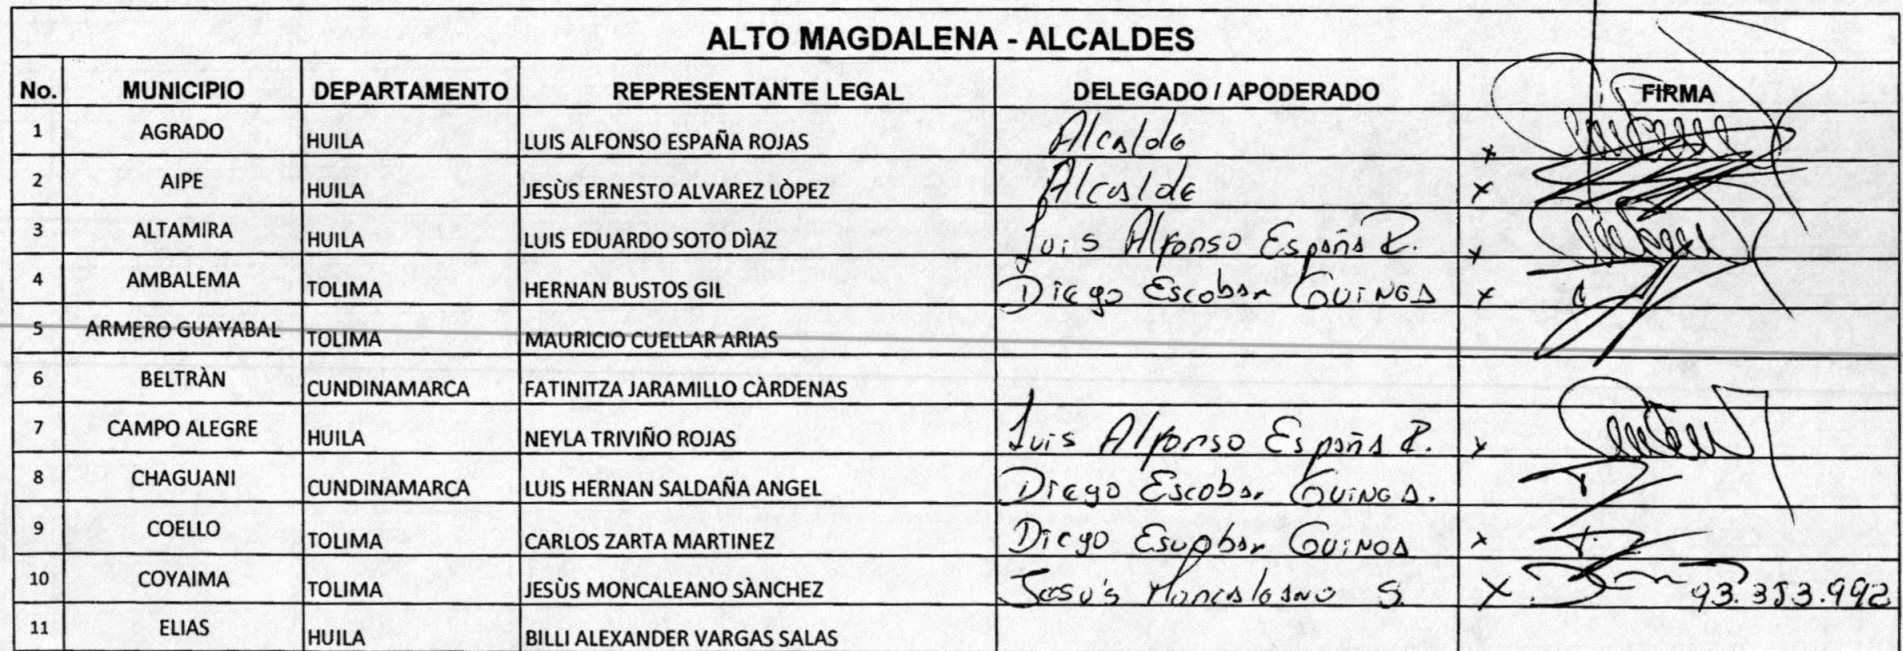 ALTO MAGDALENA - ALCALDES
No. MUNICIPIO DEPARTAMENTO REPRESENTANTE LEGAL DELEGADO / APODERADO FIRMA
1 AGRADO HUILA LUIS ALFONSO ESPAÑA ROJAS Alcalde x
2 AIPE HUILA JESÙS ERNESTO ALVAREZ LÒPEZ Alcalde x
3 ALTAMIRA HUILA LUIS EDUARDO SOTO DÌAZ Luis Alfonso España R. x
4 AMBALEMA TOLIMA HERNAN BUSTOS GIL Diego Escobar x
5 ARMERO GUAYABAL TOLIMA MAURICIO CUELLAR ARIAS
6 BELTRÀN CUNDINAMARCA FATINITZA JARAMILLO CÀRDENAS
7 CAMPO ALEGRE HUILA NEYLA TRIVIÑO ROJAS Luis Alfonso España R. x
8 CHAGUANI CUNDINAMARCA LUIS HERNAN SALDAÑA ANGEL Diego Escobar
9 COELLO TOLIMA CARLOS ZARTA MARTINEZ Diego x
10 COYAIMA TOLIMA JESÙS MONCALEANO SÀNCHEZ Jesús Moncaleano S. X 93.383.992
11 ELIAS HUILA BILLI ALEXANDER VARGAS SALAS